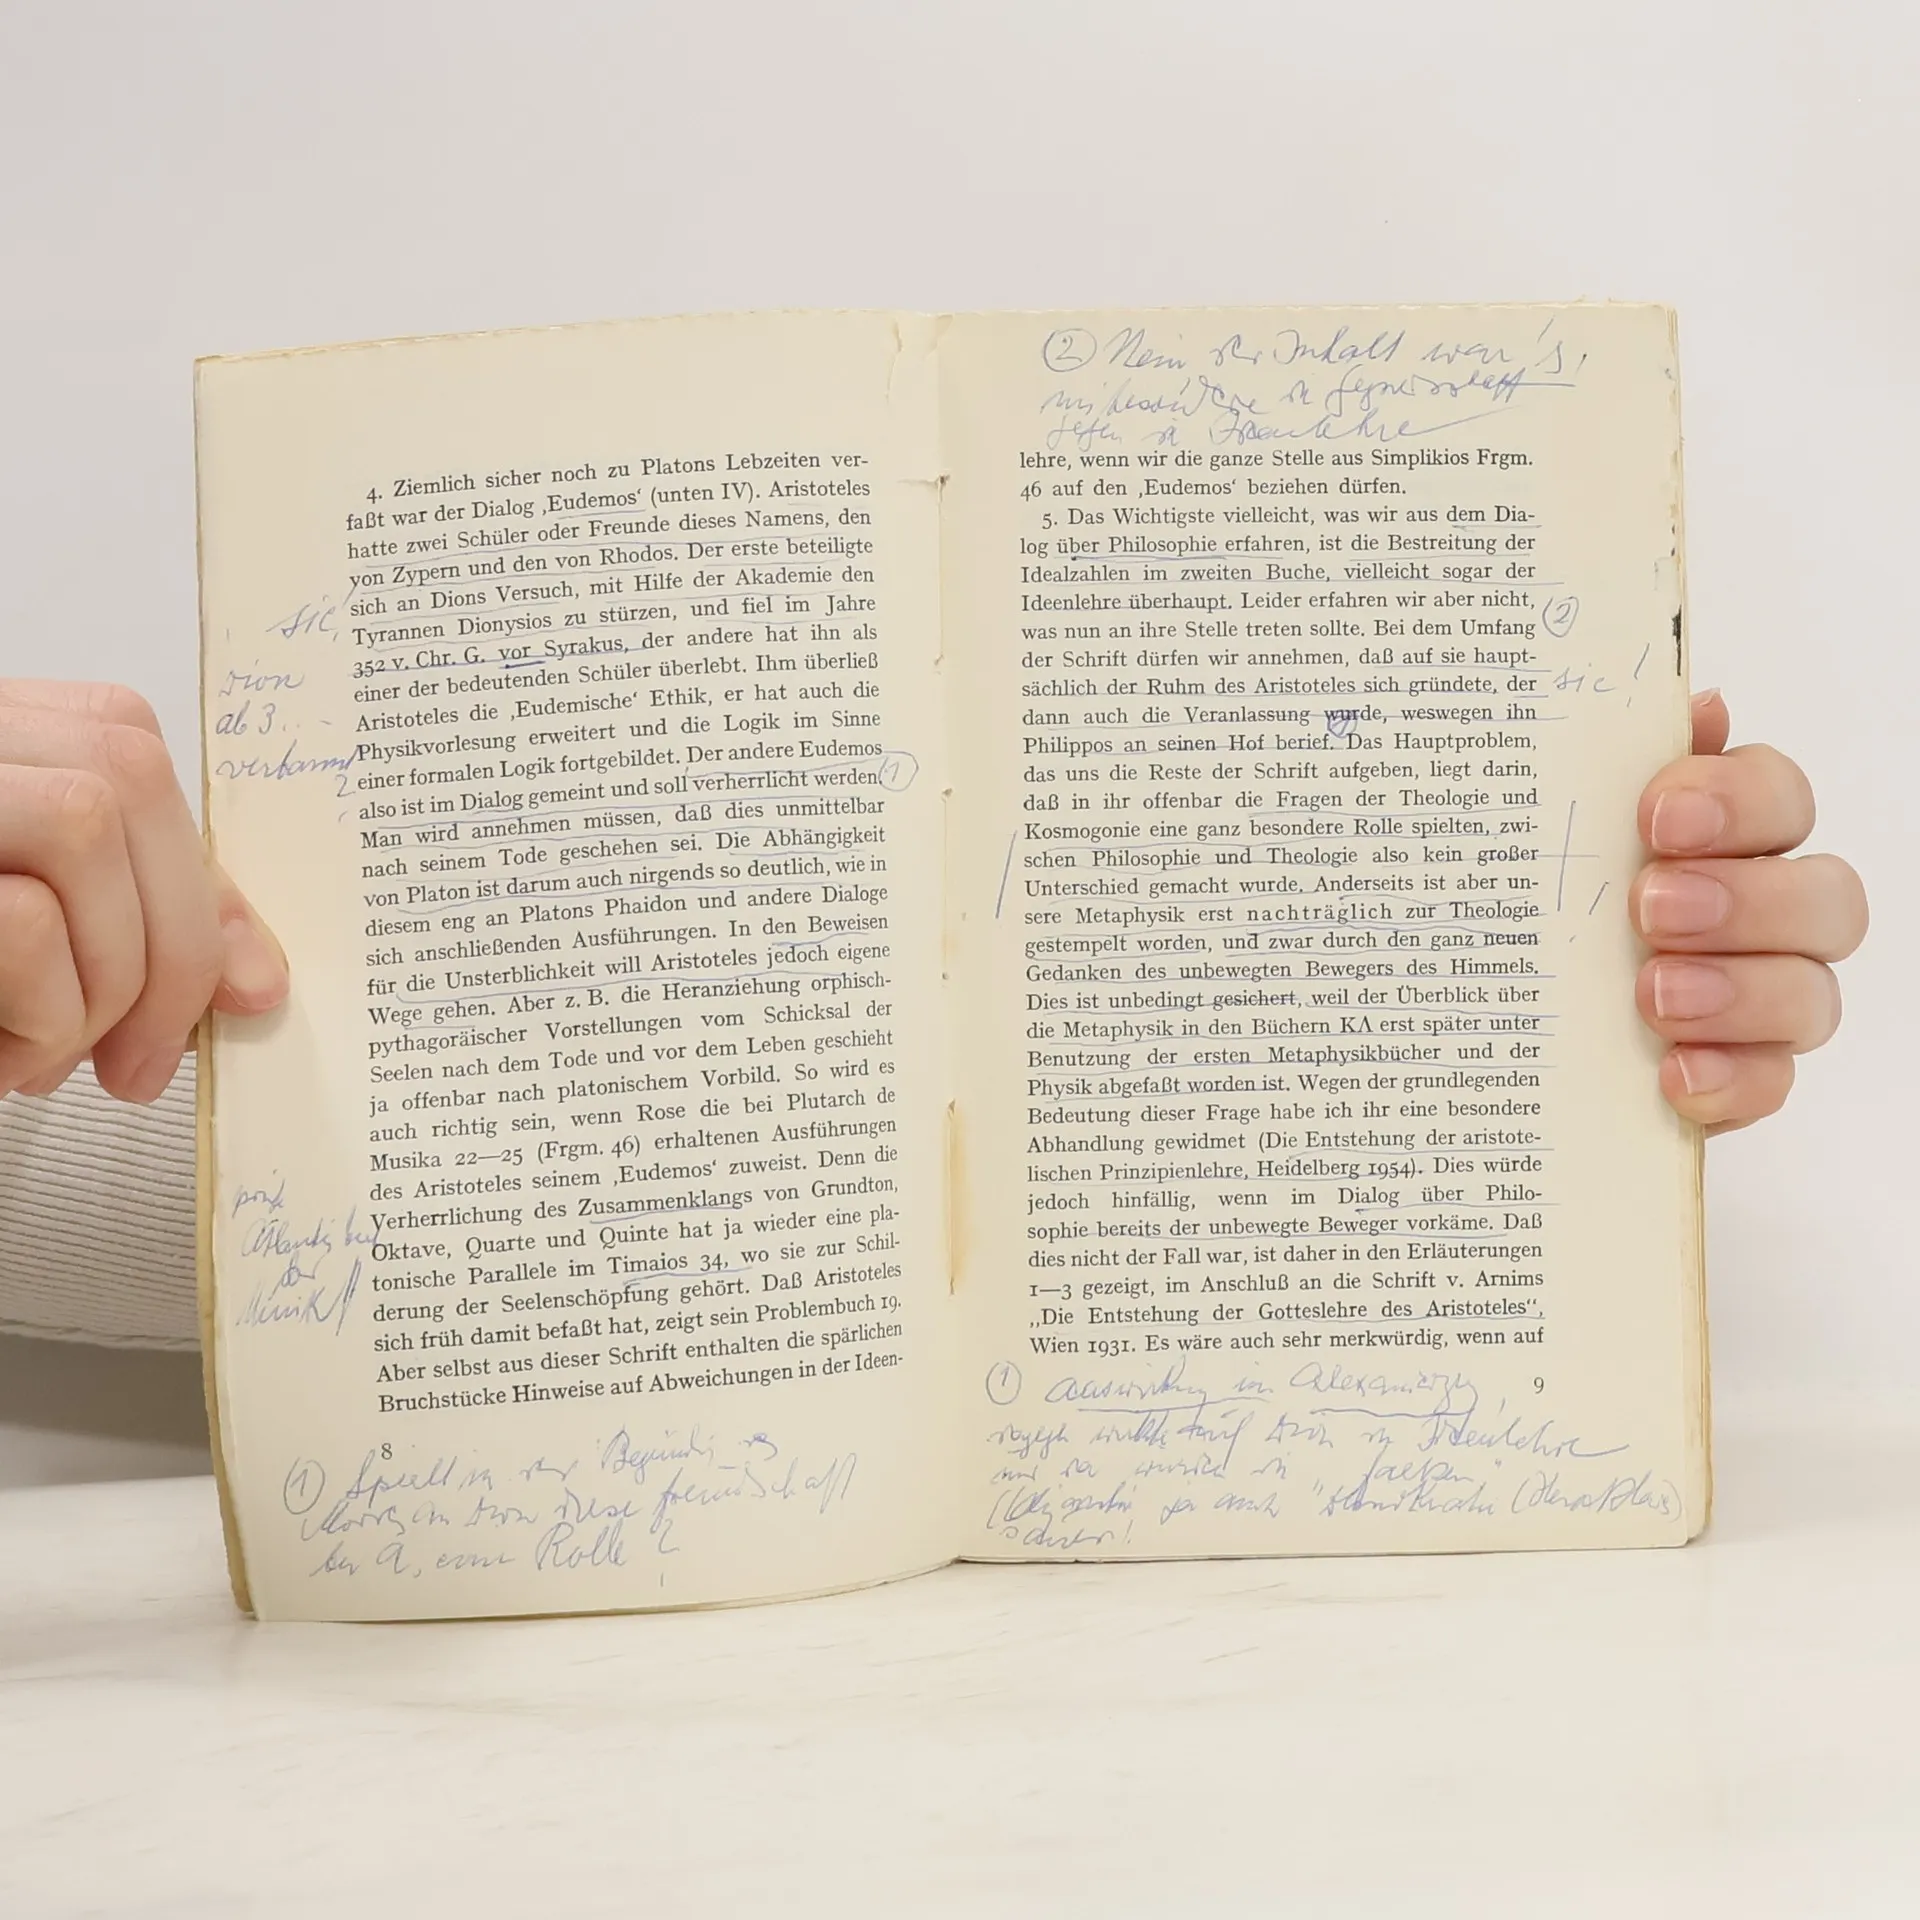 sic,
Dion
ab 3..
verbannt
?
4. Ziemlich sicher noch zu Platons Lebzeiten ver-
faßt war der Dialog ‚Eudemos‘ (unten IV). Aristoteles
hatte zwei Schüler oder Freunde dieses Namens, den
von Zypern und den von Rhodos. Der erste beteiligte
sich an Dions Versuch, mit Hilfe der Akademie den
Tyrannen Dionysios zu stürzen, und fiel im Jahre
352 v. Chr. G. vor Syrakus, der andere hat ihn als
einer der bedeutenden Schüler überlebt. Ihm überließ
Aristoteles die ‚Eudemische‘ Ethik, er hat auch die
Physikvorlesung erweitert und die Logik im Sinne
einer formalen Logik fortgebildet. Der andere Eudemos
also ist im Dialog gemeint und soll verherrlicht werden. 1
Man wird annehmen müssen, daß dies unmittelbar
nach seinem Tode geschehen sei. Die Abhängigkeit
von Platon ist darum auch nirgends so deutlich, wie in
diesem eng an Platons Phaidon und andere Dialoge
sich anschließenden Ausführungen. In den Beweisen
für die Unsterblichkeit will Aristoteles jedoch eigene
Wege gehen. Aber z. B. die Heranziehung orphisch-
pythagoräischer Vorstellungen vom Schicksal der
Seelen nach dem Tode und vor dem Leben geschieht
ja offenbar nach platonischem Vorbild. So wird es
auch richtig sein, wenn Rose die bei Plutarch de
Musika 22—25 (Frgm. 46) erhaltenen Ausführungen
des Aristoteles seinem ‚Eudemos‘ zuweist. Denn die
Verherrlichung des Zusammenklangs von Grundton,
Oktave, Quarte und Quinte hat ja wieder eine pla-
tonische Parallele im Timaios 34, wo sie zur Schil-
derung der Seelenschöpfung gehört. Daß Aristoteles
sich früh damit befaßt hat, zeigt sein Problembuch 19.
Aber selbst aus dieser Schrift enthalten die spärlichen
Bruchstücke Hinweise auf Abweichungen in der Ideen-
8
1 Spielt in der
diese Freundschaft
A. eine Rolle ?
2 Nein der Inhalt war's,
insbesondere die Gegnerschaft
gegen die Ideenlehre
lehre, wenn wir die ganze Stelle aus Simplikios Frgm.
46 auf den ‚Eudemos‘ beziehen dürfen.
5. Das Wichtigste vielleicht, was wir aus dem Dia-
log über Philosophie erfahren, ist die Bestreitung der
Idealzahlen im zweiten Buche, vielleicht sogar der
Ideenlehre überhaupt. Leider erfahren wir aber nicht,
was nun an ihre Stelle treten sollte. Bei dem Umfang 2
der Schrift dürfen wir annehmen, daß auf sie haupt-
sächlich der Ruhm des Aristoteles sich gründete, der sic!
dann auch die Veranlassung wurde, weswegen ihn
Philippos an seinen Hof berief. Das Hauptproblem,
das uns die Reste der Schrift aufgeben, liegt darin,
daß in ihr offenbar die Fragen der Theologie und
Kosmogonie eine ganz besondere Rolle spielten, zwi-
schen Philosophie und Theologie also kein großer
Unterschied gemacht wurde. Anderseits ist aber un-
sere Metaphysik erst nachträglich zur Theologie
gestempelt worden, und zwar durch den ganz neuen
Gedanken des unbewegten Bewegers des Himmels.
Dies ist unbedingt gesichert, weil der Überblick über
die Metaphysik in den Büchern ΚΛ erst später unter
Benutzung der ersten Metaphysikbücher und der
Physik abgefaßt worden ist. Wegen der grundlegenden
Bedeutung dieser Frage habe ich ihr eine besondere
Abhandlung gewidmet (Die Entstehung der aristote-
lischen Prinzipienlehre, Heidelberg 1954). Dies würde
jedoch hinfällig, wenn im Dialog über Philo-
sophie bereits der unbewegte Beweger vorkäme. Daß
dies nicht der Fall war, ist daher in den Erläuterungen
1—3 gezeigt, im Anschluß an die Schrift v. Arnims
„Die Entstehung der Gotteslehre des Aristoteles“,
Wien 1931. Es wäre auch sehr merkwürdig, wenn auf
9
1 Auswirkung im Alexanderzug
Ideenlehre